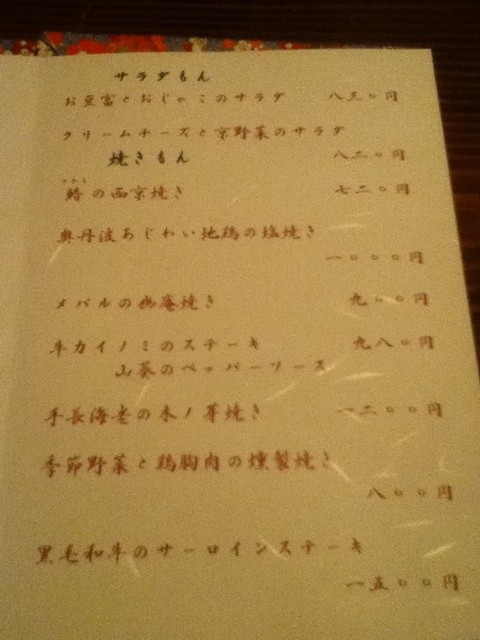 サラダもん
お豆富とおじゃこのサラダ 八三〇円
クリームチーズと京野菜のサラダ
八二〇円
焼きもん
の西京焼き 七二〇円
奥丹波あじわい地鶏の塩焼き
一〇〇〇円
メバルの幽庵焼き 九〇〇円
牛カイノミのステーキ 九八〇円
山葵のペッパーソース
手長海老の木ノ芽焼き 一二〇〇円
季節野菜と鶏胸肉の燻製焼き
八〇〇円
黒毛和牛のサーロインステーキ
一五〇〇円